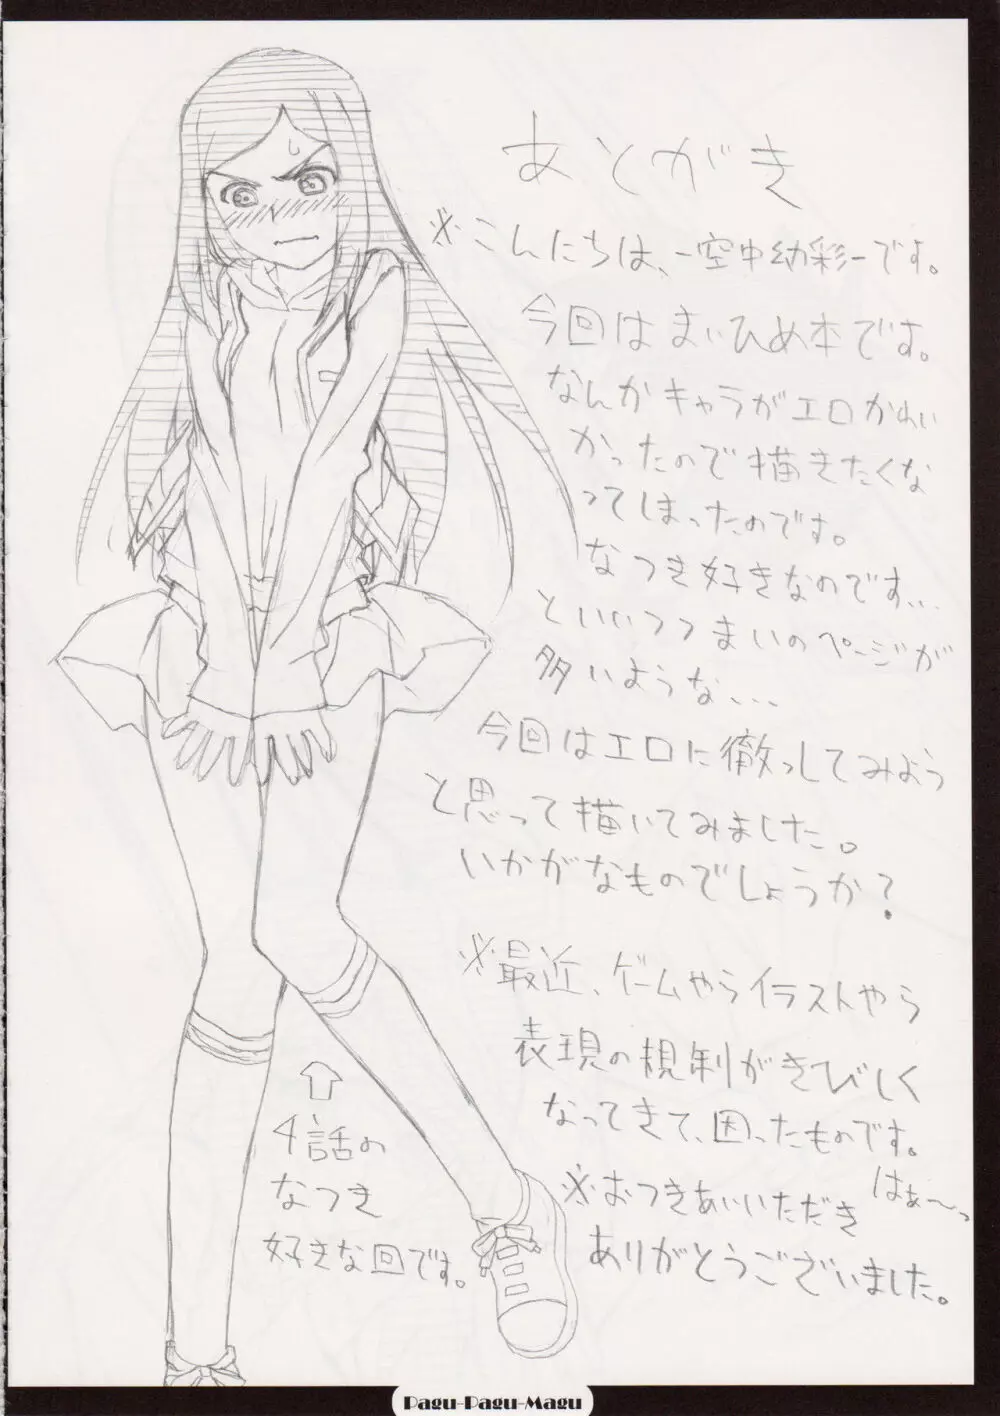 あとがき
※こんにちは、一空中幼彩一です。
今回はまいひめ本です。
なんかキャラがエロかわい
かったので描きたくな
ってしまったのです。
なつき好きなのです...
といいつつまいのページが
多いような...
今回はエロに徹っしてみよう
と思って描いてみました。
いかがなものでしょうか?
※最近、ゲームやらイラストやら
表現の規制がきびしく
なってきて、困ったものです。
はぁ〜っ
※おつきあいいただき
ありがとうございました。
⇧
4話の
なつき
好きな回です。
Pagu-Pagu-Magu